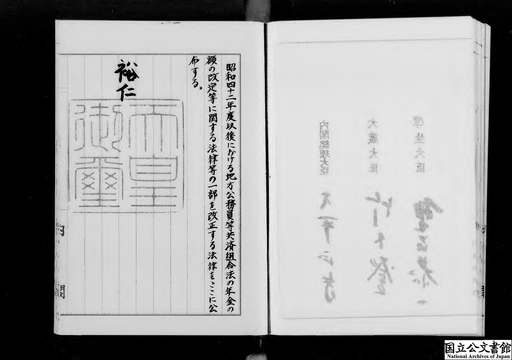 昭和四十二年度以後における地方公務員等共済組合法の年金の
額の改定等に関する法律等の一部を改正する法律をここに公
布する。
裕仁
天皇
御璽
大蔵大臣
内閣総理大臣
国立公文書館
National Archives of Japan